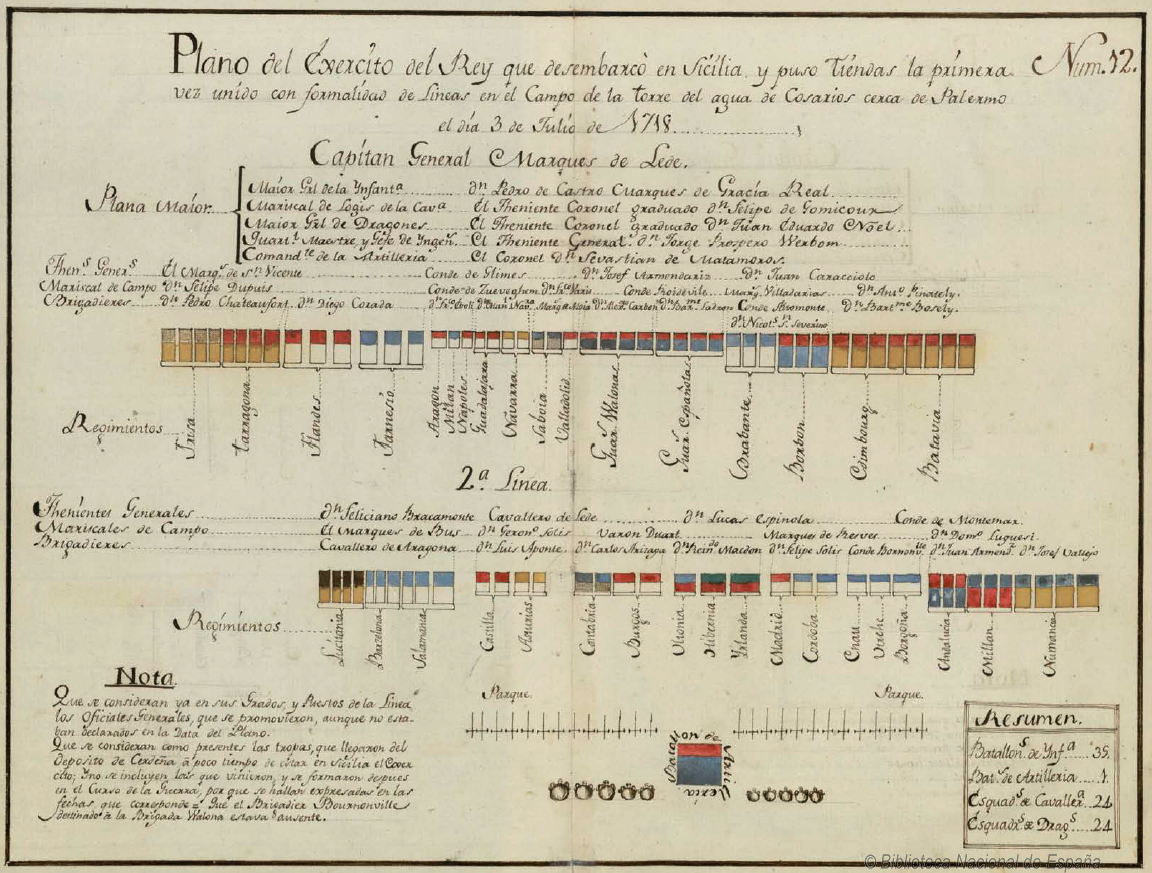 Plano del Exercito del Rey que desembarcò en Sicilia, y puso Tiendas la primera
Num. 12.
vez unido con formalidad de Lineas en el Campo de la torre del agua de Cosarios cerca de Palermo
el dia 3 de Julio de 1718.
Capitan General Marques de Lede.
Plana Maior
Maior Grl de la Ynfantª Dn Pedro de Castro Marques de Gracia Real
Mariscal de Logis de la Cavª El Theniente Coronel graduado Dn Felipe de Gomicour
Maior Grl de Dragones El Theniente Coronel graduado Dn Juan Eduardo Noel
Quartl Maestre y Gefe de Yngen.s El Theniente General Dn Jorge Prospero Werbom
Comandte de la Artilleria El Coronel Dn Sevastian de Matamoros.
Thens Geners El Marqs de Sn Vicente Conde de Glimes Dn Josef Armendariz Dn Juan Caracciolo
Mariscal de Campo Dn Felipe Dupuis Conde de Zueveghem Marqs Villadarias Dn Antº Pinately.
Brigadieres Dn Pedro Chateaufort Dn Diego Dn Barme Ladron Conde Dn Bartme Bosely.
Dn Nicols Sn Severino
Regimientos
Frisa
Tarragona
Flandes
Farnesio
Aragon
Milan
Napoles
Guadalajara
Navarra
Saboia
Valladolid
Gs Guar. Walonas
Gs Guar. Españolas
Brabante
Borbon
Edimbourg
Batavia
2ª Linea.
Thenientes Generales Dn Feliciano Bracamonte Cavallero de Lede Dn Lucas Espinola Conde de Montemar
Mariscales de Campo El Marques de Bus Dn Geronº Solis Varon Duart Marques de Dn Domº Luquesi
Brigadieres Cavallero de Aragona Dn Luis Aponte Dn Carlos Arizaga Dn Macdon Dn Felipe Solis Conde Bornonvlle Dn Juan Armend.z Dn Josef Vallejo
Regimientos
Lusitania
Barcelona
Salamanca
Castilla
Asturias
Cantabria
Burgos
Ultonia
Hibernia
Yrlanda
Madrid
Cordoba
Chau
Utreche
Borgoña
Andalucia
Millan
Numancia
Nota.
Que se consideran ya en sus Grados, y Puestos de la Linea
los Oficiales Generales, que se promovieron, aunque no esta-
ban declarados en la Data del Plano.
Que se consideran como presentes las tropas, que llegaron del
Deposito de Cerdeña à poco tiempo de estar en Sicilia el Exer
cito; Yno se incluyen las que vinieron, y se formaron despues
en el Curso de la Guerra, por que se hallan expresadas en las
fechas que corresponde = Que el Brigadier Bournonville
destinado à la Brigada Walona estava ausente.
Parque.
Parque.
Batallon de Artilleria
Resumen.
Batallons de Ynfª 35.
Bats de Artilleria 1.
Esquads de Cavallerª 24
Esquads de Drags 24
© Biblioteca Nacional de España